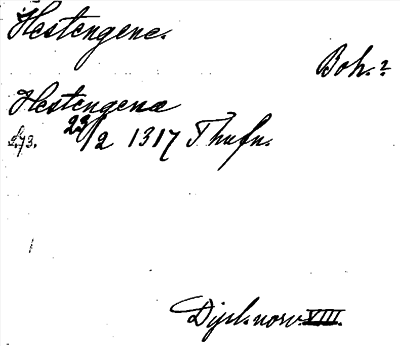 Hestengene.
Boh. ?
Hestengenæ
S. 73. 23/2 1317 Thufn.
Dipl. norv. XIII.